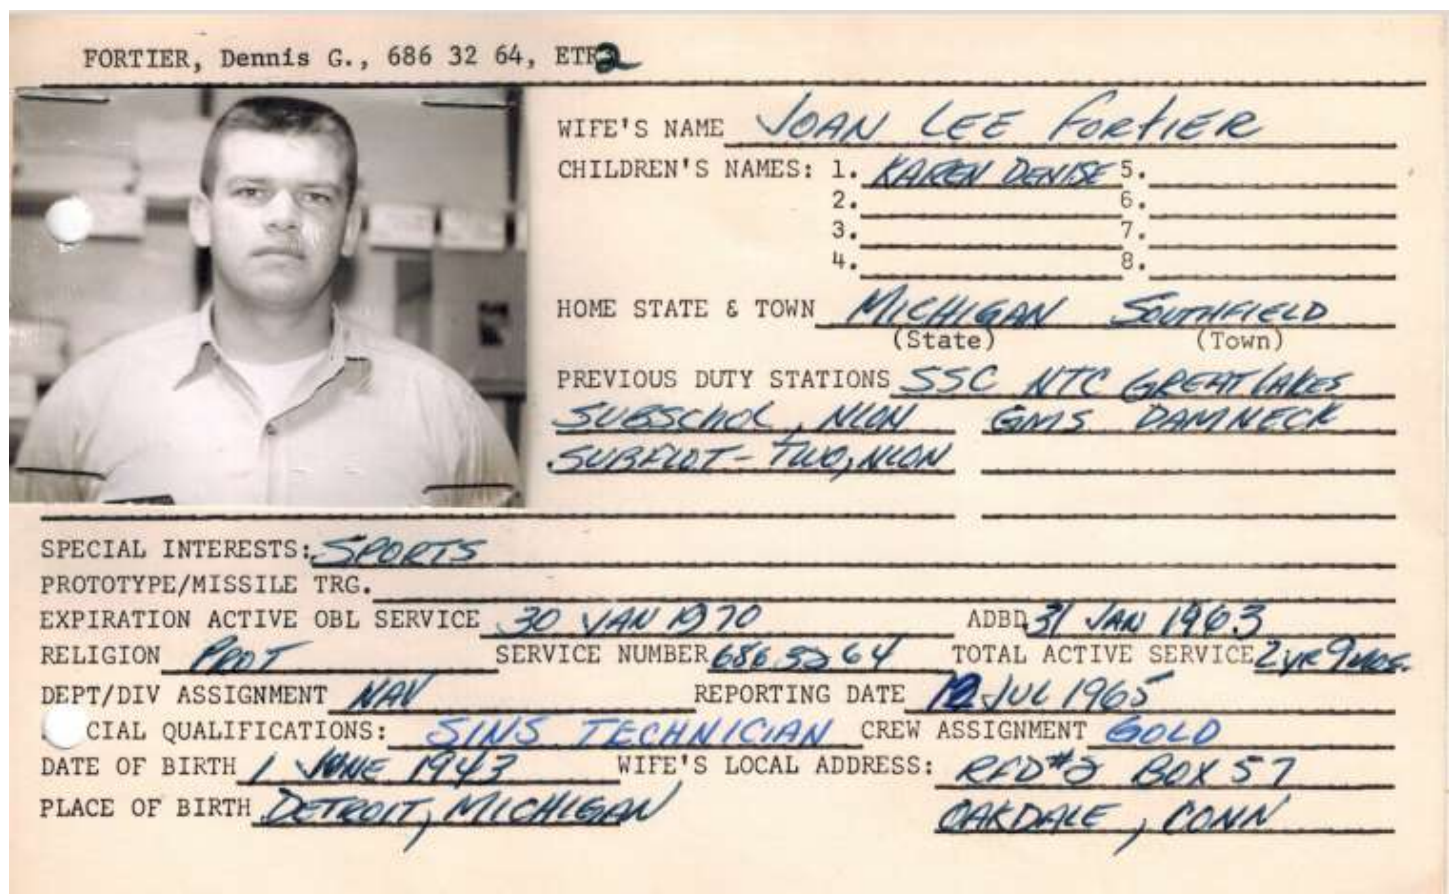 FORTIER, Dennis G., 686 32 64, ETR2
WIFE'S NAME JOAN LEE FORTIER
CHILDREN'S NAMES: 1. KAREN DENISE 5.
2. 6.
3. 7.
4. 8.
HOME STATE & TOWN MICHIGAN SOUTHFIELD
(State) (Town)
PREVIOUS DUTY STATIONS SSC NTC GREAT LAKES
SUBSCHOL, NLON GMS DAMNECK
SUBFLOT-TWO, NLON
SPECIAL INTERESTS: SPORTS
PROTOTYPE/MISSILE TRG.
EXPIRATION ACTIVE OBL SERVICE 30 JAN 1970 ADBD 31 JAN 1963
RELIGION PROT SERVICE NUMBER 686 32 64 TOTAL ACTIVE SERVICE 2 yr 9 mos.
DEPT/DIV ASSIGNMENT NAV REPORTING DATE 12 JUL 1965
CIAL QUALIFICATIONS: SINS TECHNICIAN CREW ASSIGNMENT GOLD
DATE OF BIRTH 1 JUNE 1943 WIFE'S LOCAL ADDRESS: RFD#2 BOX 57
PLACE OF BIRTH DETROIT, MICHIGAN OAKDALE, CONN